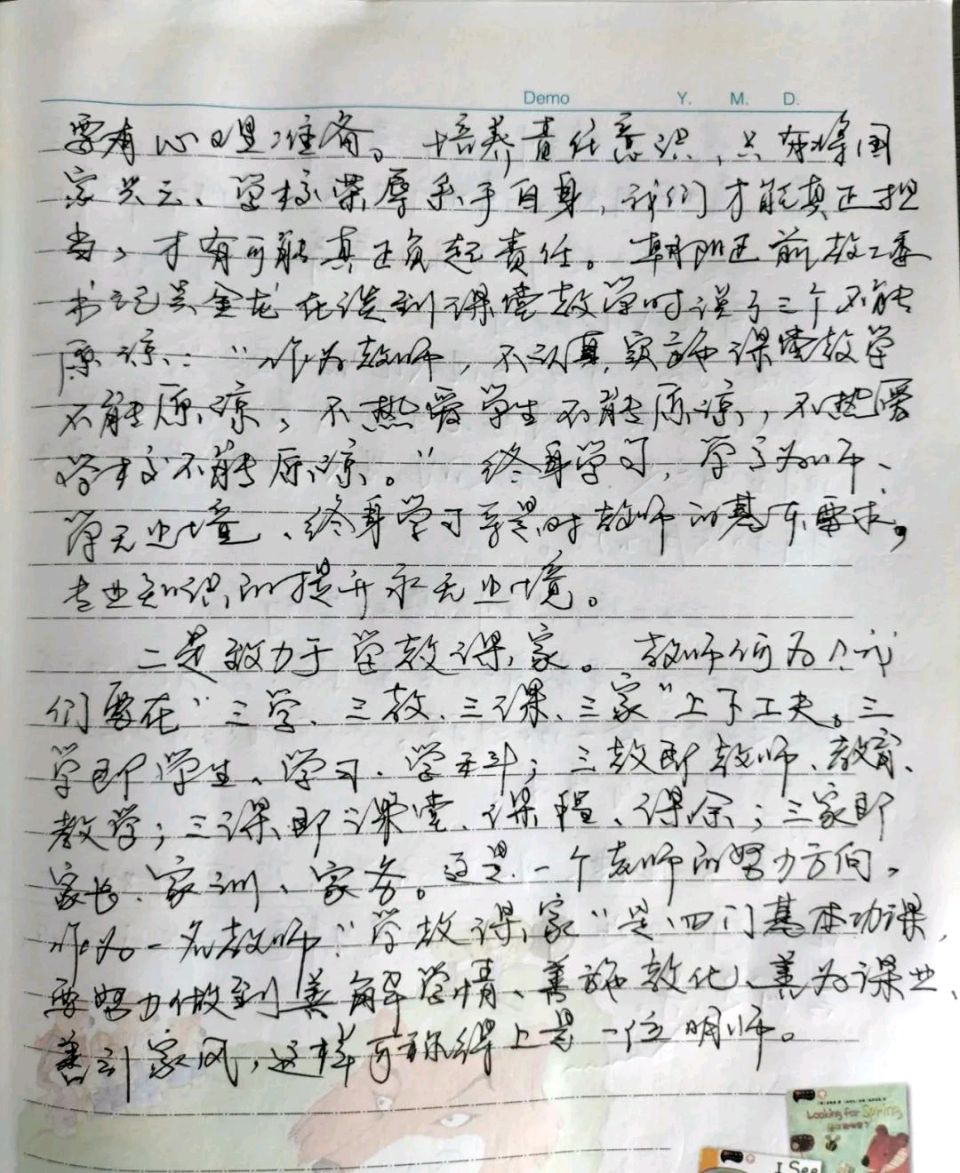 Demo Y. M. D.
要有心理准备。培养责任意识，只有将国
家兴亡、学校荣辱系于自身，我们才能真正担
当，才有可能真正负起责任。朝阳区前教工委
书记吴金龙在谈到课堂教学时说了三个不能
原谅：“作为教师，不认真实施课堂教学
不能原谅，不热爱学生不能原谅，不热爱
学校不能原谅。”终身学习，学高为师、
学无止境、终身学习是时教师的基本要求，
专业知识的提升永无止境。
二是致力于学教课家。教师何为？我
们要在“三学、三教、三课、三家”上下工夫。三
学即学生、学习、学科；三教即教师、教育、
教学；三课即课堂、课程、课余；三家即
家长、家训、家务。这是一个老师的努力方向，
作为一名教师“学教课家”是四门基本功课，
要努力做到善解学情、善施教化、善为课业、
善引家风，这样可称得上是一位明师。
Looking for Spring
I See